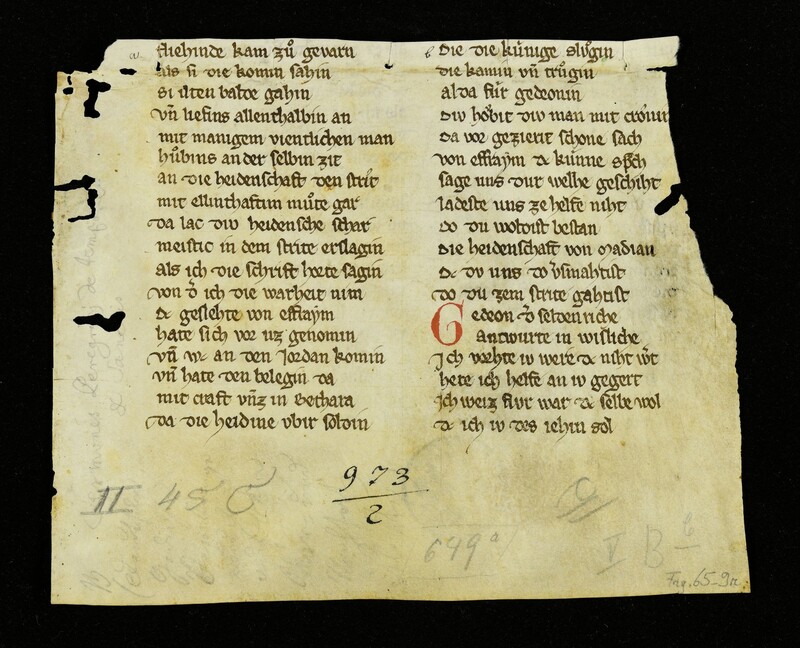 fliehinde kam zuͦ gevarn
als si die komin sahin
si ilten balde gahin
vn̄ liefins allenthalbin an
mit manigem vientlichen man
huͦbins an der selbin zit
an die heidenschaft den strit
mit ellinthaftim muͦte gar
Da lac div heidensche schar
meistic in dem strite erslagin
als ich die schrift horte sagin
von d͛ ich die warheit nim
dc geslehte von effraym
hate sich vor uz genomin
vn̄ wc an den Jordan komin
vn̄ hate den belegin da
mit craft vn̄z in Bethara
da die heidine vbir soltin
Die die kuͤnige sluͦgin
die kamin vn̄ truͦgin
alda fuͤr gedeonin
div hoͮbit div man mit
da vor gezierit schone sach
von effraym dc kuͤnne sp͛ch
sage uns dur welhe geschiht
ladeste uns ze helfe niht
do du woltist bestan
die heidenschaft von Madian
dc dv uns do v͛smahtist
do du zem strite gahtist
Gedeon d͛ seldenriche
antwurte in wisliche
Ich vorhte iv were dc niht w͛t
hete ich helfe an iv gegert
Ich weiz fivr war dc selbe wol
dc ich iv des iehin sol
973
2
II 45 C
649ª
V B
Frg. 65-9a